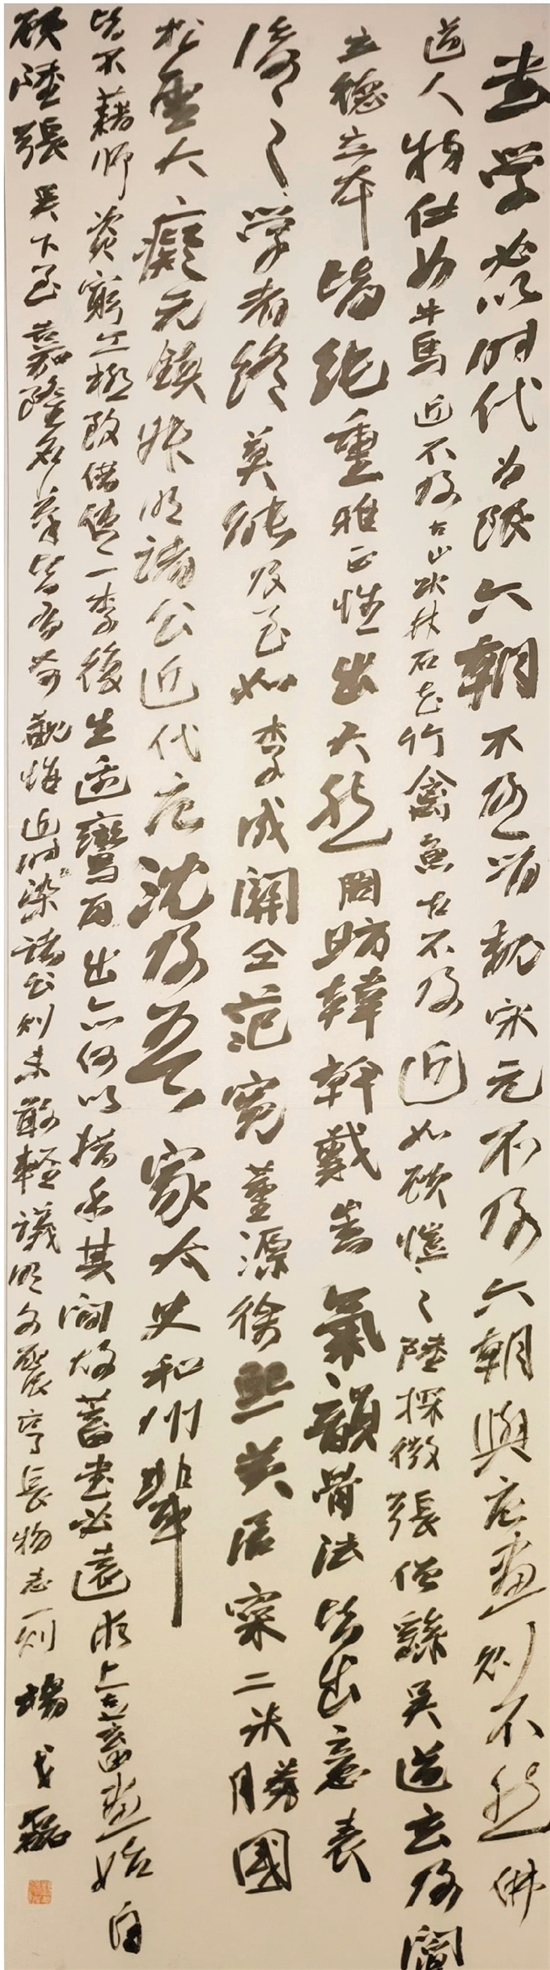 書學必以时代为限六朝不及晉魏宋元不及六朝與唐畫则不然佛
道人物仕女牛馬近不及古山水林石花竹禽魚古不及近如顧愷之陸探微張僧繇吳道玄及閻
立德立本皆純重雅正性出天然周昉韓幹戴嵩氣韻骨法皆出意表
後之學者終莫能及至如李成關仝范寬董源徐熙黃居寀二米勝國
松雪大癡元鎮叔明諸公近代唐沈及吾家太史和州輩
皆不藉師資窮工極致借使二李復生邊鸞再出亦何以措手其間故蓄書必遠求上古蓄畫始自
顧陸張吳下至嘉隆名筆皆有奇觀惟近时染諸公则未敢輕議明文震亨長物志一则楊磊